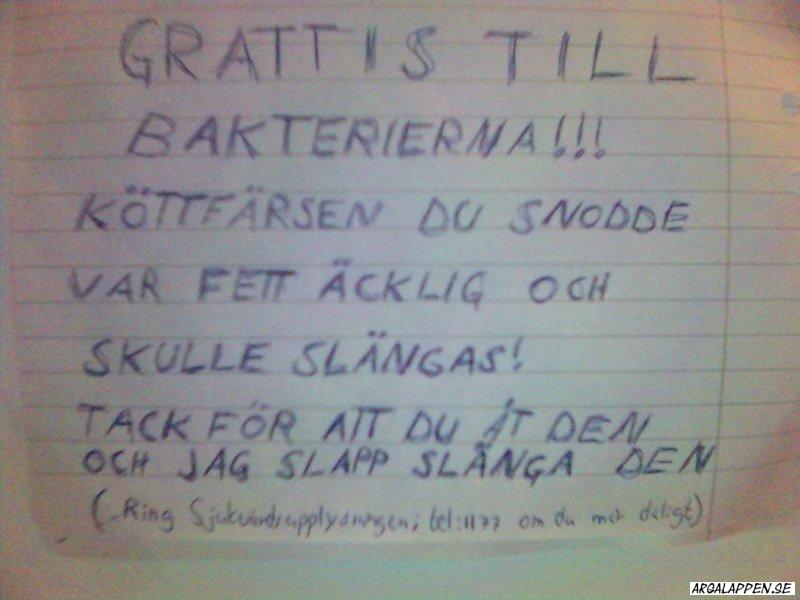 GRATTIS TILL
BAKTERIERNA!!!
KÖTTFÄRSEN DU SNODDE
VAR FETT ÄCKLIG OCH
SKULLE SLÄNGAS!
TACK FÖR ATT DU ÅT DEN
OCH JAG SLAPP SLÄNGA DEN
(Ring Sjukvårdsupplysningen, tel:1177 om du mår dåligt)
ARGALAPPEN.SE